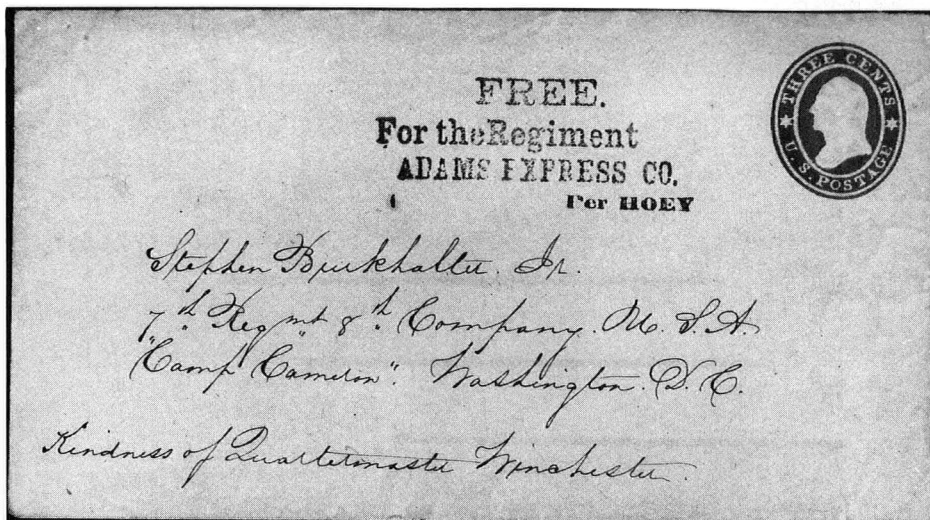 FREE.
For the Regiment
ADAMS EXPRESS CO.
Per HOEY
THREE CENTS
U.S. POSTAGE
Stephen Burkhalter. Jr.
7th Regmt 8th Company. U. S. A.
"Camp Cameron". Washington. D. C.
Kindness of Quartermaster Winchester.